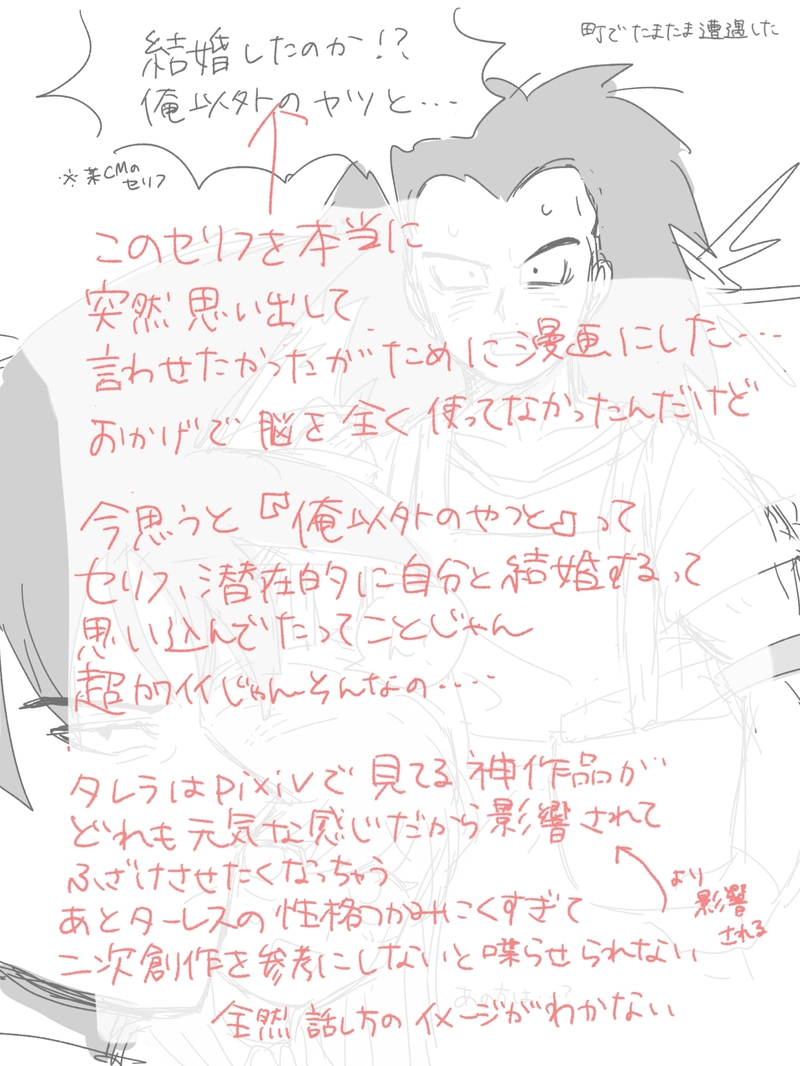 町でたまたま遭遇した
結婚したのか!?
俺以外のヤツと…
※某CMの
セリフ
このセリフを本当に
突然思い出して
言わせたかったがために漫画にした…
おかげで脳を全く使ってなかったんだけど
今思うと『俺以外のやつと』って
セリフ、潜在的に自分と結婚するって
思い込んでたってことじゃん
超カワイイじゃんそんなの‥‥
タレラはpixivで見てる神作品が
どれも元気な感じだから影響されて
ふざけさせたくなっちゃう
より
影響
される
あとターレスの性格つかみにくすぎて
二次創作を参考にしないと喋らせられない
全然話し方のイメージがわかない